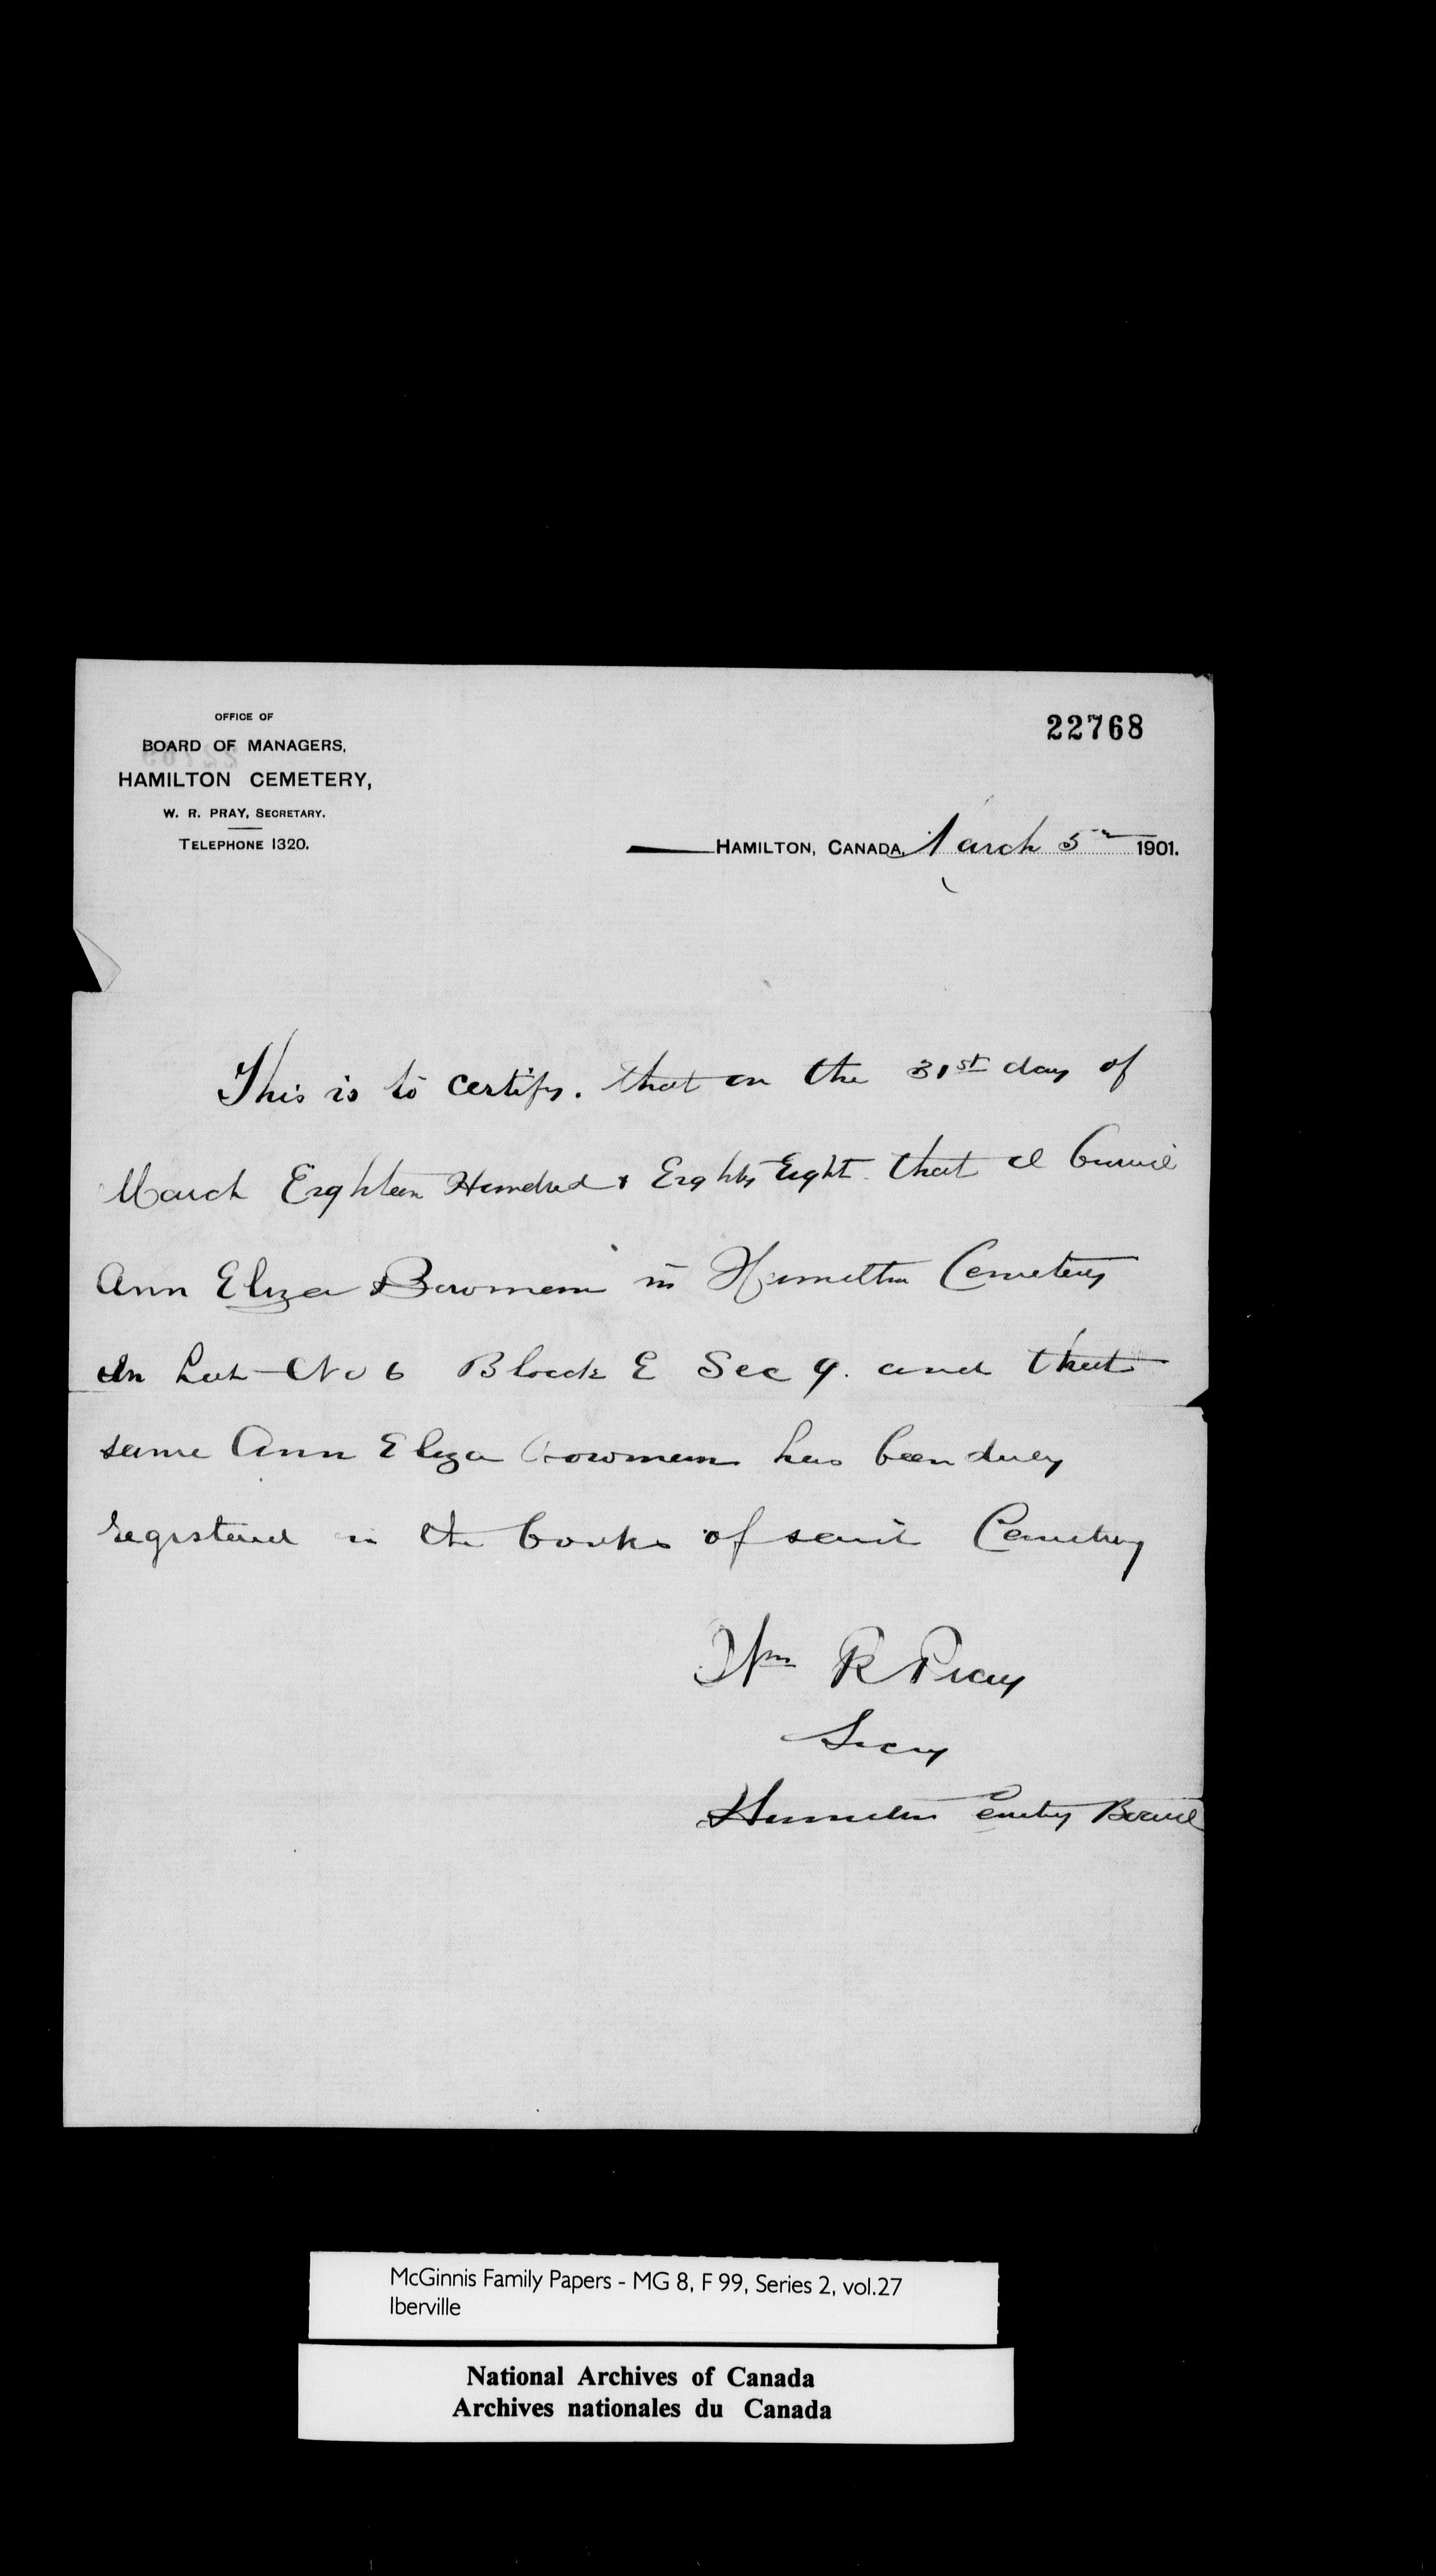 OFFICE OF
BOARD OF MANAGERS,
HAMILTON CEMETERY,
W. R. PRAY, SECRETARY.
TELEPHONE 1320.
22768
HAMILTON, CANADA, March 5th 1901.
This is to certify. that on the 31st day of
March Eighteen Hundred & Eighty Eight. that I buried
Ann Eliza Bowman in Hamilton Cemetery
In Lot No 6 Block E Sec 9. and that
same Ann Eliza Bowman has been duly
registered in the books of said Cemetery
Wm R Pray
Secy
Hamilton Cemetery Board
McGinnis Family Papers - MG 8, F 99, Series 2, vol.27
Iberville
National Archives of Canada
Archives nationales du Canada